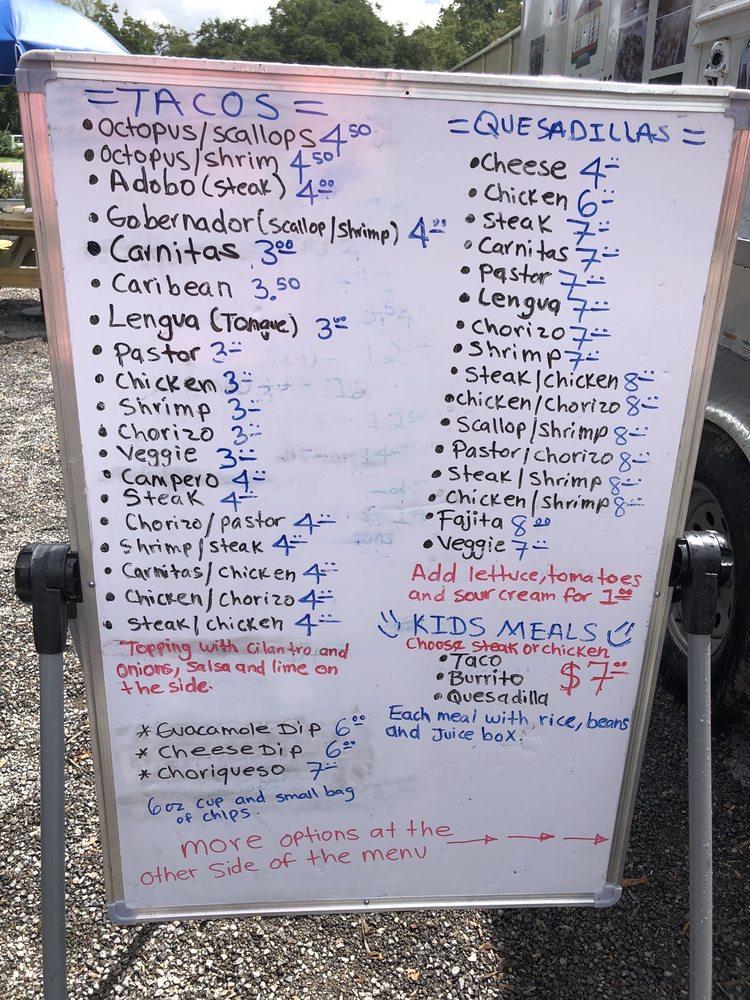 =TACOS=
• Octopus/scallops 4.50
• Octopus/shrim 4.50
• Adobo (steak) 4.00
• Gobernador (scallop/shrimp) 4.00
• Carnitas 3.00
• Caribean 3.50
• Lengua (Tongue) 3.00
• Pastor 3.00
• Chicken 3.00
• Shrimp 3.00
• Chorizo 3.00
• Veggie 3.00
• Campero 4.00
• Steak 4.00
• Chorizo/pastor 4.00
• Shrimp/steak 4.00
• Carnitas/Chicken 4.00
• Chicken/Chorizo 4.00
• Steak/chicken 4.00
*Topping with cilantro and
onions, salsa and lime on
the side.
* Guacamole Dip 6.00
* Cheese Dip 6.00
* Choriqueso 7.00
6 oz cup and small bag
of chips.
=QUESADILLAS=
• Cheese 4.00
• Chicken 6.00
• Steak 7.00
• Carnitas 7.00
• Pastor 7.00
• Lengua 7.00
• Chorizo 7.00
• Shrimp 7.00
• Steak/chicken 8.00
• chicken/Chorizo 8.00
• Scallop/Shrimp 8.00
• Pastor/chorizo 8.00
• Steak/Shrimp 8.00
• Chicken/shrimp 8.00
• Fajita 8.00
• Veggie 7.00
Add lettuce, tomatoes
and sour cream for 1.00
KIDS MEALS
Choose steak or chicken
• Taco
• Burrito
• Quesadilla
$7.00
Each meal with rice, beans
and Juice box.
more options at the
other side of the menu